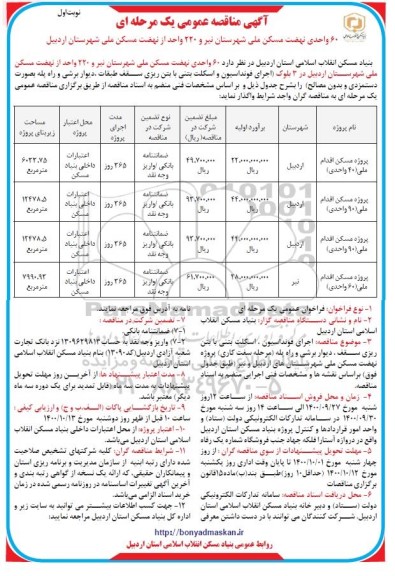 نوبت اول
آگهی مناقصه عمومی یک مرحله ای
۶۰ واحدی نهضت مسکن ملی شهرستان نیر و ۲۲۰ واحد از نهضت مسکن ملی شهرستان اردبیل
بنیاد مسکن انقلاب اسلامی استان اردبیل در نظر دارد ۶۰ واحدی نهضت مسکن ملی شهرستان نیر و ۲۲۰ واحد از نهضت مسکن
ملی شهرستان اردبیل در ۳ بلوک (اجرای فونداسیون و اسکلت بتنی با بتن ریزی سقف طبقات ،دیوار برشی و راه پله بصورت
دستمزدی و بدون مصالح) را بشرح جدول ذیل و بر اساس مشخصات فنی منضم به اسناد مناقصه از طریق برگزاری مناقصه عمومی
یک مرحله ای به مناقصه گران واجد شرایط واگذار نماید:
نام پروژه شهرستان برآورد اولیه مبلغ تضمین شرکت در مناقصه( ریال) نوع تضمین شرکت در مناقصه مدت اجرای پروژه محل اعتبار پروژه مساحت زیربنای پروژه
پروژه مسکن اقدام ملی(۴۰ واحدی) اردبیل ۲۲،۰۰۰،۰۰۰،۰۰۰ ریال ۴۹،۷۰۰،۰۰۰ ریال ضمانتنامه بانکی /واریز وجه نقد ۳۶۵ روز اعتبارات داخلی بنیاد مسکن ۶۰۲۲،۷۵ مترمربع
پروژه مسکن اقدام ملی(۹۰ واحدی) اردبیل ۴۴،۰۰۰،۰۰۰،۰۰۰ ریال ۹۳،۷۰۰،۰۰۰ ریال ضمانتنامه بانکی /واریز وجه نقد ۳۶۵ روز اعتبارات داخلی بنیاد مسکن ۱۲۴۷۸،۵ مترمربع
پروژه مسکن اقدام ملی(۹۰ واحدی) اردبیل ۴۴،۰۰۰،۰۰۰،۰۰۰ ریال ۹۳،۷۰۰،۰۰۰ ریال ضمانتنامه بانکی /واریز وجه نقد ۳۶۵ روز اعتبارات داخلی بنیاد مسکن ۱۲۴۷۸،۵ مترمربع
پروژه مسکن اقدام ملی(۶۰ واحدی) نیر ۲۸،۰۰۰،۰۰۰،۰۰۰ ریال ۶۱،۷۰۰،۰۰۰ ریال ضمانتنامه بانکی /واریز وجه نقد ۳۶۵ روز اعتبارات داخلی بنیاد مسکن ۷۹۹۰،۹۳ مترمربع
۱- نوع فراخوان: فراخوان عمومی یک مرحله ای
۲- نام و نشانی دستگاه مناقصه گزار: بنیاد مسکن انقلاب
اسلامی استان اردبیل
۳- موضوع مناقصه: اجرای فونداسیون ، اسکلت بتنی با بتن
ریزی سقف ، دیوار برشی و راه پله (مرحله سفت کاری) پروژه
نهضت مسکن ملی شهرستان های اردبیل و نیر (طبق جدول
فوق) براساس نقشه ها و مشخصات فنی اجرایی منضم به اسناد
مناقصه.
۴- زمان و محل فروش اسناد مناقصه: از ساعت ۱۲ روز
شنبه مورخ ۱۴۰۰/۰۹/۲۷ الی ساعت ۱۴ روز سه شنبه مورخ
۱۴۰۰/۰۹/۳۰ در سامانه تدارکات الکترونیکی دولت (ستاد) و
واحد امور قراردادها و کنترل پروژه بنیاد مسکن استان اردبیل
واقع در دروازه آستارا فلکه جهاد جنب فروشگاه شماره یک رفاه
۵- مهلت تحویل پیشنهادات از سوی مناقصه گران : از روز
چهار شنبه مورخ ۱۴۰۰/۱۰/۰۱ تا پایان وقت اداری روز یکشنبه
مورخ ۱۴۰۰/۱۰/۱۲ (حداقل ۱۰ روز)طبق بند(ب)ماده۱۵قانون
برگزاری مناقصات
۶- محل دریافت اسناد مناقصه: سامانه تدارکات الکترونیکی
دولت (ستاد) و دبیر خانه بنیاد مسکن انقلاب اسلامی استان
اردبیل، شرکت کنندگان می توانند با در دست داشتن معرفی
نامه به آدرس فوق مراجعه نمایند.
۷- تضمین شرکت در مناقصه :
۷-۱) ضمانتنامه بانکی
۷-۲) واریز وجه نقد به حساب ۱۳۰۹۶۲۹۸۱۳ نزد بانک تجارت
شعبه آزادی اردبیل(کد۱۳۰۹۰) بنام بنیاد مسکن انقلاب اسلامی
استان اردبیل
۸- مدت اعتبار پیشنهاد ها: از آخرین روز مهلت تحویل
پیشنهادات به مدت سه ماه( قابل تمدید برای یک دوره سه ماه
دیگر) معتبر باشد.
۹- تاریخ بازگشایی پاکات (الف،ب و ج) و ارزیابی کیفی :
ساعت ۱۰ قبل از ظهر روز دوشنبه مورخ ۱۴۰۰/۱۰/۱۳
۱۰- اعتبار پروژه: از محل اعتبارات داخلی بنیاد مسکن انقلاب
اسلامی استان اردبیل می‌باشد.
۱۱- شرایط مناقصه گران: کلیه شرکتهای تشخیص صلاحیت
شده دارای رتبه ابنیه از سازمان مدیریت و برنامه ریزی استان
و پیمانکاران حقیقی، که ارائه یک نسخه از گواهی رتبه بندی و
آخرین آگهی تغییرات اساسنامه در روزنامه رسمی شده در زمان
خرید اسناد الزامی می‌باشد.
۱۲- جهت کسب اطلاعات بیشتر می توانید به سایت زیر و
اداره کل بنیاد مسکن استان اردبیل مراجعه نمائید:
https://bonyadmaskan.ir
روابط عمومی بنیاد مسکن انقلاب اسلامی استان اردبیل